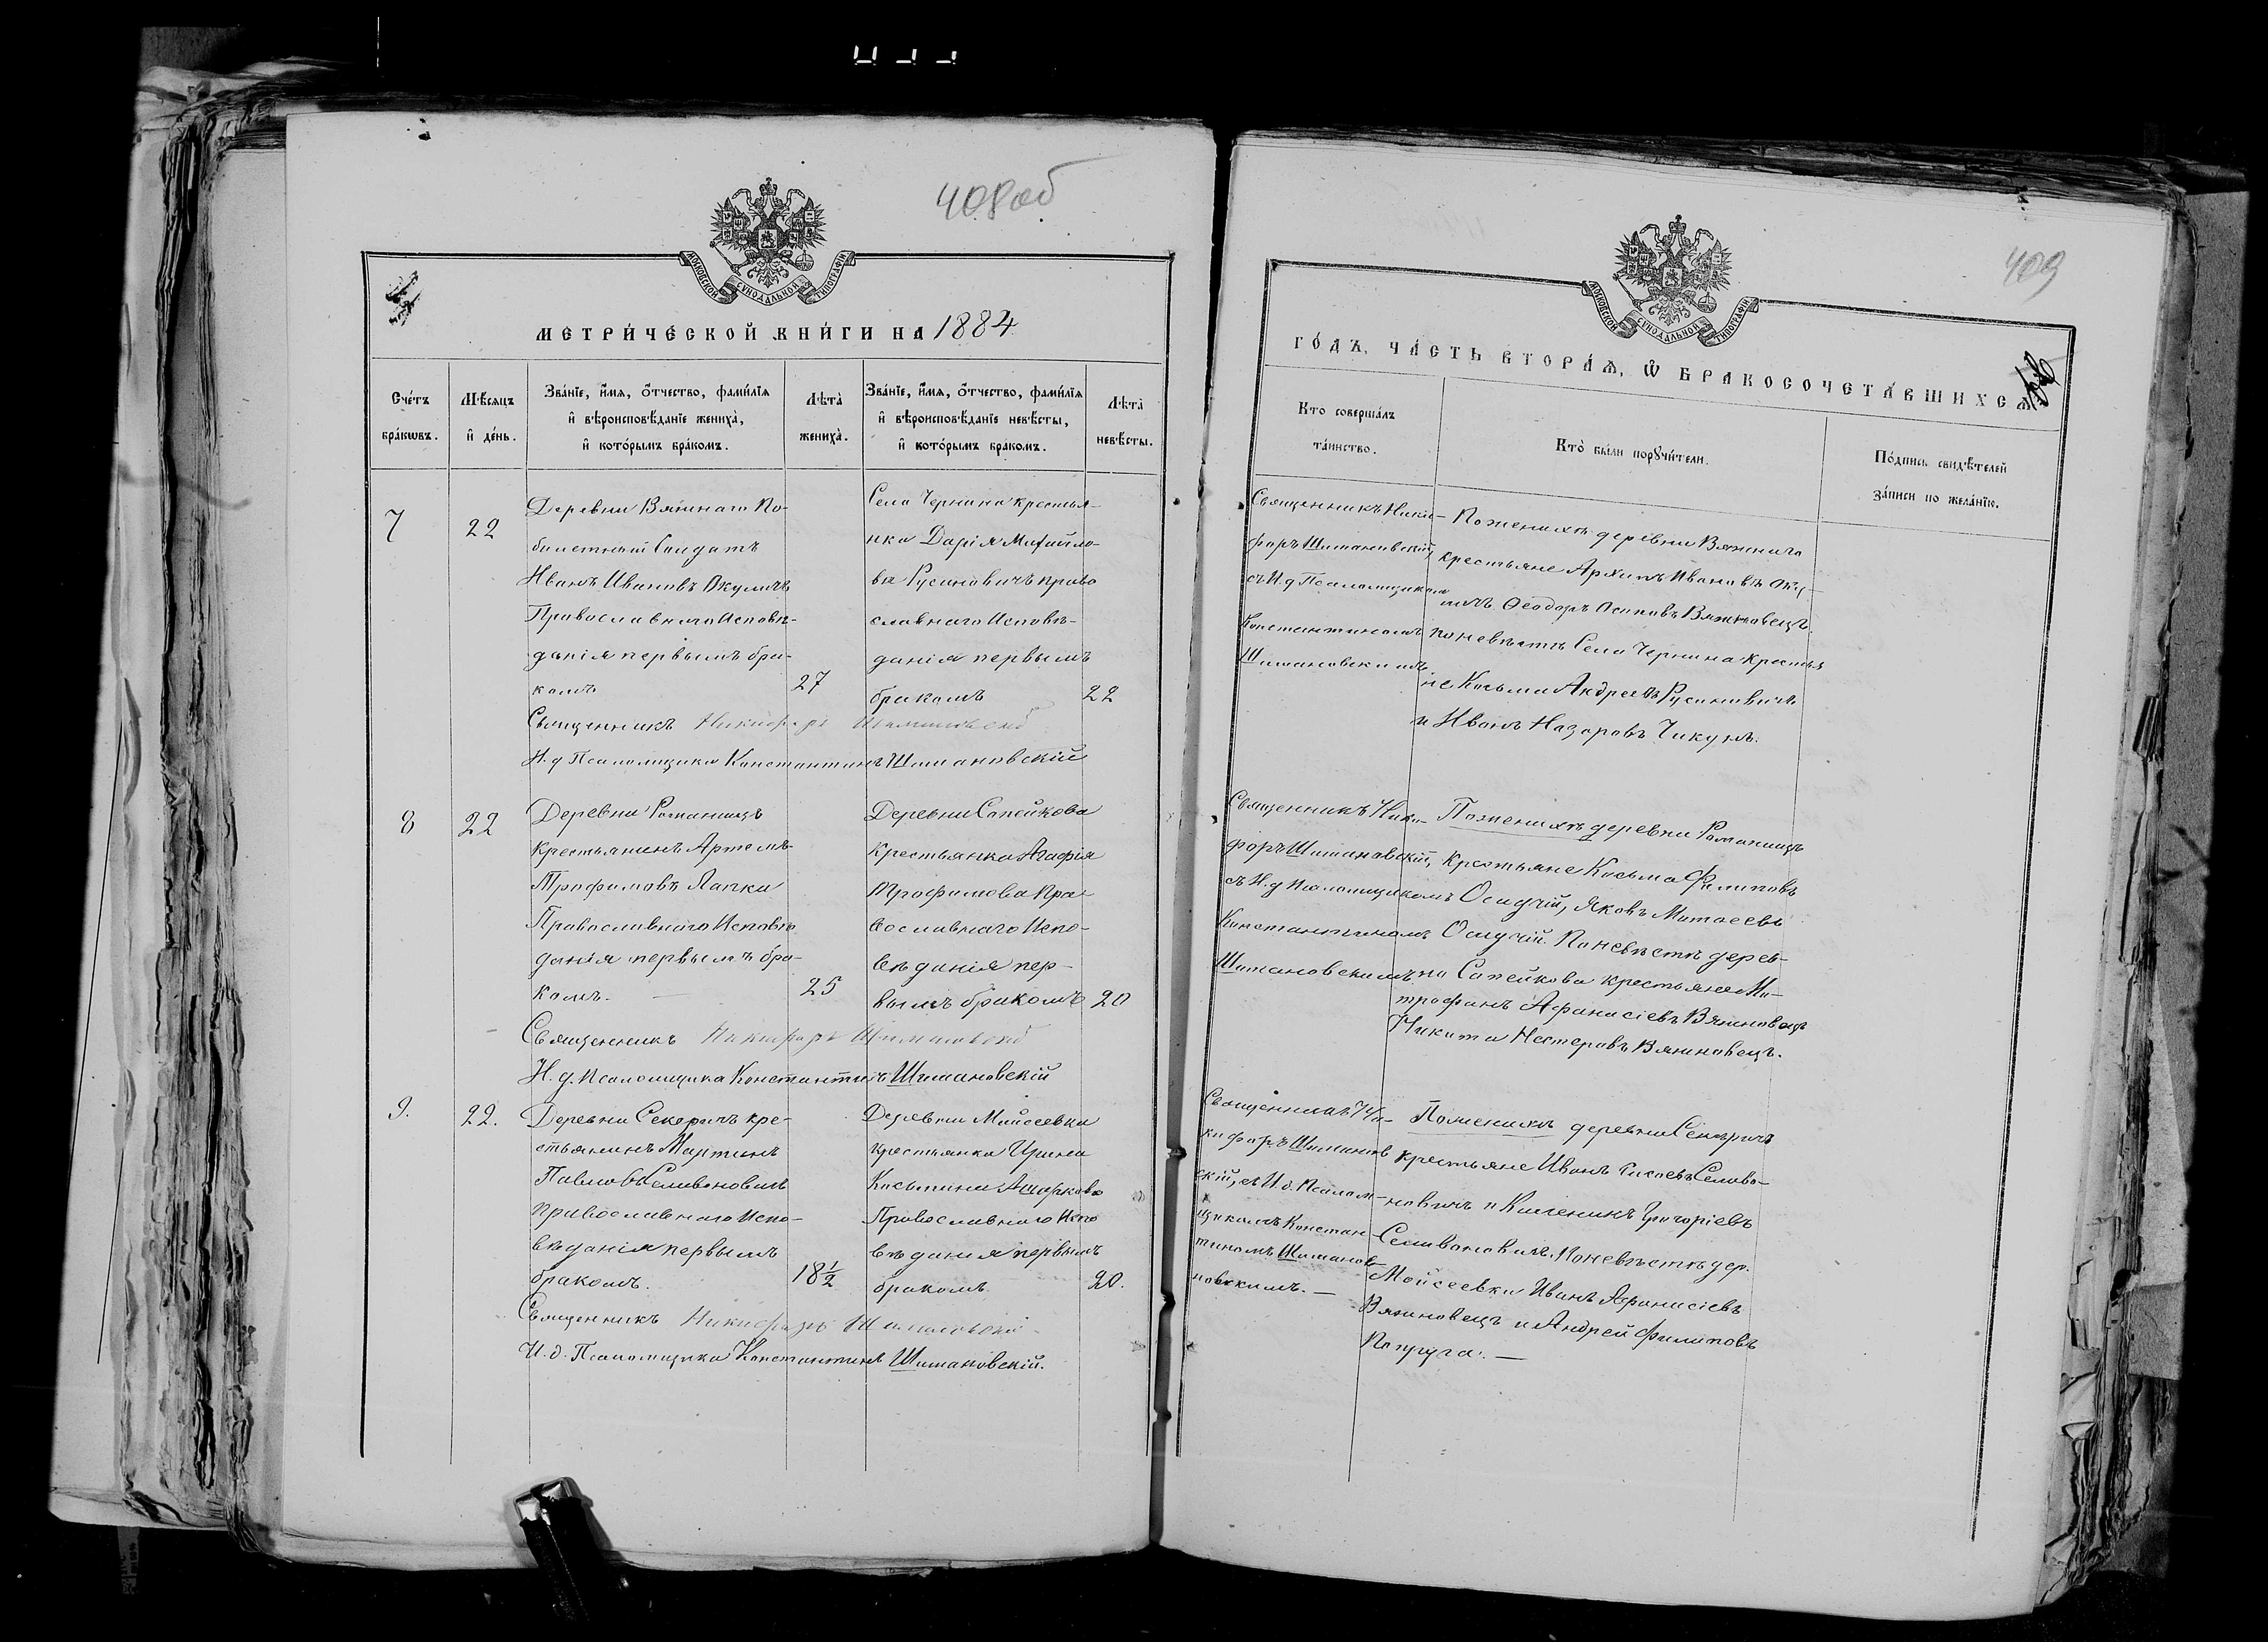 408об
МОСКОВСКОЙ СѴНОДАЛЬНОЙ ТИПОГРАФІИ
МЕТРИ́ЧЕСКОЙ КНИ́ГИ НА 1884
Сче́тъ бра́кѡвъ.
Мѣ́сяцъ и҆ де́нь.
Зва́нїе, и҆́мя, ѻ҆́тчество, фами́лїя
и҆ вѣроисповѣ́данїе жениха̀,
и҆ кото́рымъ бра́комъ.
Лѣта̀ жениха̀.
Зва́нїе, и҆́мя, ѻ҆́тчество, фами́лїя
и҆ вѣроисповѣ́данїе невѣ́сты,
и҆ кото́рымъ бра́комъ.
Лѣта̀ невѣ́сты.
7
22
Деревни Вяжнаго По-
билетный Солдатъ
Иванъ Ивановъ Окуличъ
Православнаго Исповѣ-
данія первымъ бра-
комъ
27
Села Чернина крестья-
нка Дарія Михайло-
ва Русиновичъ право
славнаго Исповѣ-
данія первымъ
бракомъ
22
Священникъ Никифоръ Шимановскій
И. д Псаломщика Константинъ Шимановскій
8
22
Деревни Романищъ
крестьянинъ Артемъ
Трофимовъ Лапка
Православнаго Исповѣ
данія первымъ бра-
комъ.
25
Деревни Сапейкова
крестьянка Агафія
Трофимова Пра-
вославнаго Испо-
вѣданія пер-
вымъ бракомъ
20
Священникъ Никифоръ Шимановскій
И. д. Псаломщика Константинъ Шимановскій
9.
22.
Деревни Секеричъ кре-
стьянинъ Мартинъ
Павловъ Селивоновичъ
православнаго Испо-
вѣданія первымъ
бракомъ.
18½
Деревни Мойсеевки
крестьянка Ирина
Косьмина
Православнаго Испо
вѣданія первымъ
бракомъ.
20.
Священникъ Никифоръ Шимановскій
И. д. Псаломщика Константинъ Шимановскій.
409
МОСКОВСКОЙ СѴНОДАЛЬНОЙ ТИПОГРАФІИ
ГО́ДЪ, ЧА́СТЬ ВТОРА́Ѧ, Ѽ БРАКОСОЧЕТА́ВШИХСѦ
Кто соверша́лъ
та́инство.
Кто̀ бы́ли порꙋчи́тели.
По́дпись свидѣ́телей
за́писи по жела́нїю.
Священникъ Ники-
форъ Шимановскій,
съ И. д Псаломщикомъ
Константиномъ
Шимановскимъ
По женихѣ деревни Вяжнаго
крестьяне Архипъ Ивановъ Оку-
личъ Ѳеодоръ Осиповъ Вяжновецъ.
по невѣстѣ Села Чернина крестья
не Косьма Андреевъ Русиновичъ
и Иванъ Назаровъ Чикунъ.
Священникъ Ники-
форъ Шимановскій,
съ И. д Псаломщикомъ
Константиномъ
Шимановскимъ
По женихѣ деревни Романищъ
крестьяне Косьма Филиповъ
Осидчій, Яковъ Матвеевъ
Осидчій. По невѣстѣ дерев-
ни Сапейкова крестьяне Ми-
трофанъ Афанасіевъ Вяжновецъ
Никита Нестеровъ Вяжновецъ.
Священникъ Ни-
кифоръ Шиманов
скій, съ И. д. Псалом-
щикомъ Констан-
тиномъ Шиманов-
новскимъ.
По женихѣ деревни Секеричъ
крестьяне Иванъ Селиво-
новичъ и Григоріевъ
Селивоновичъ. По невѣстѣ дер.
Мойсеевки Иванъ Афанасіевъ
Вяжновецъ и Андрей Филиповъ
Попруга.